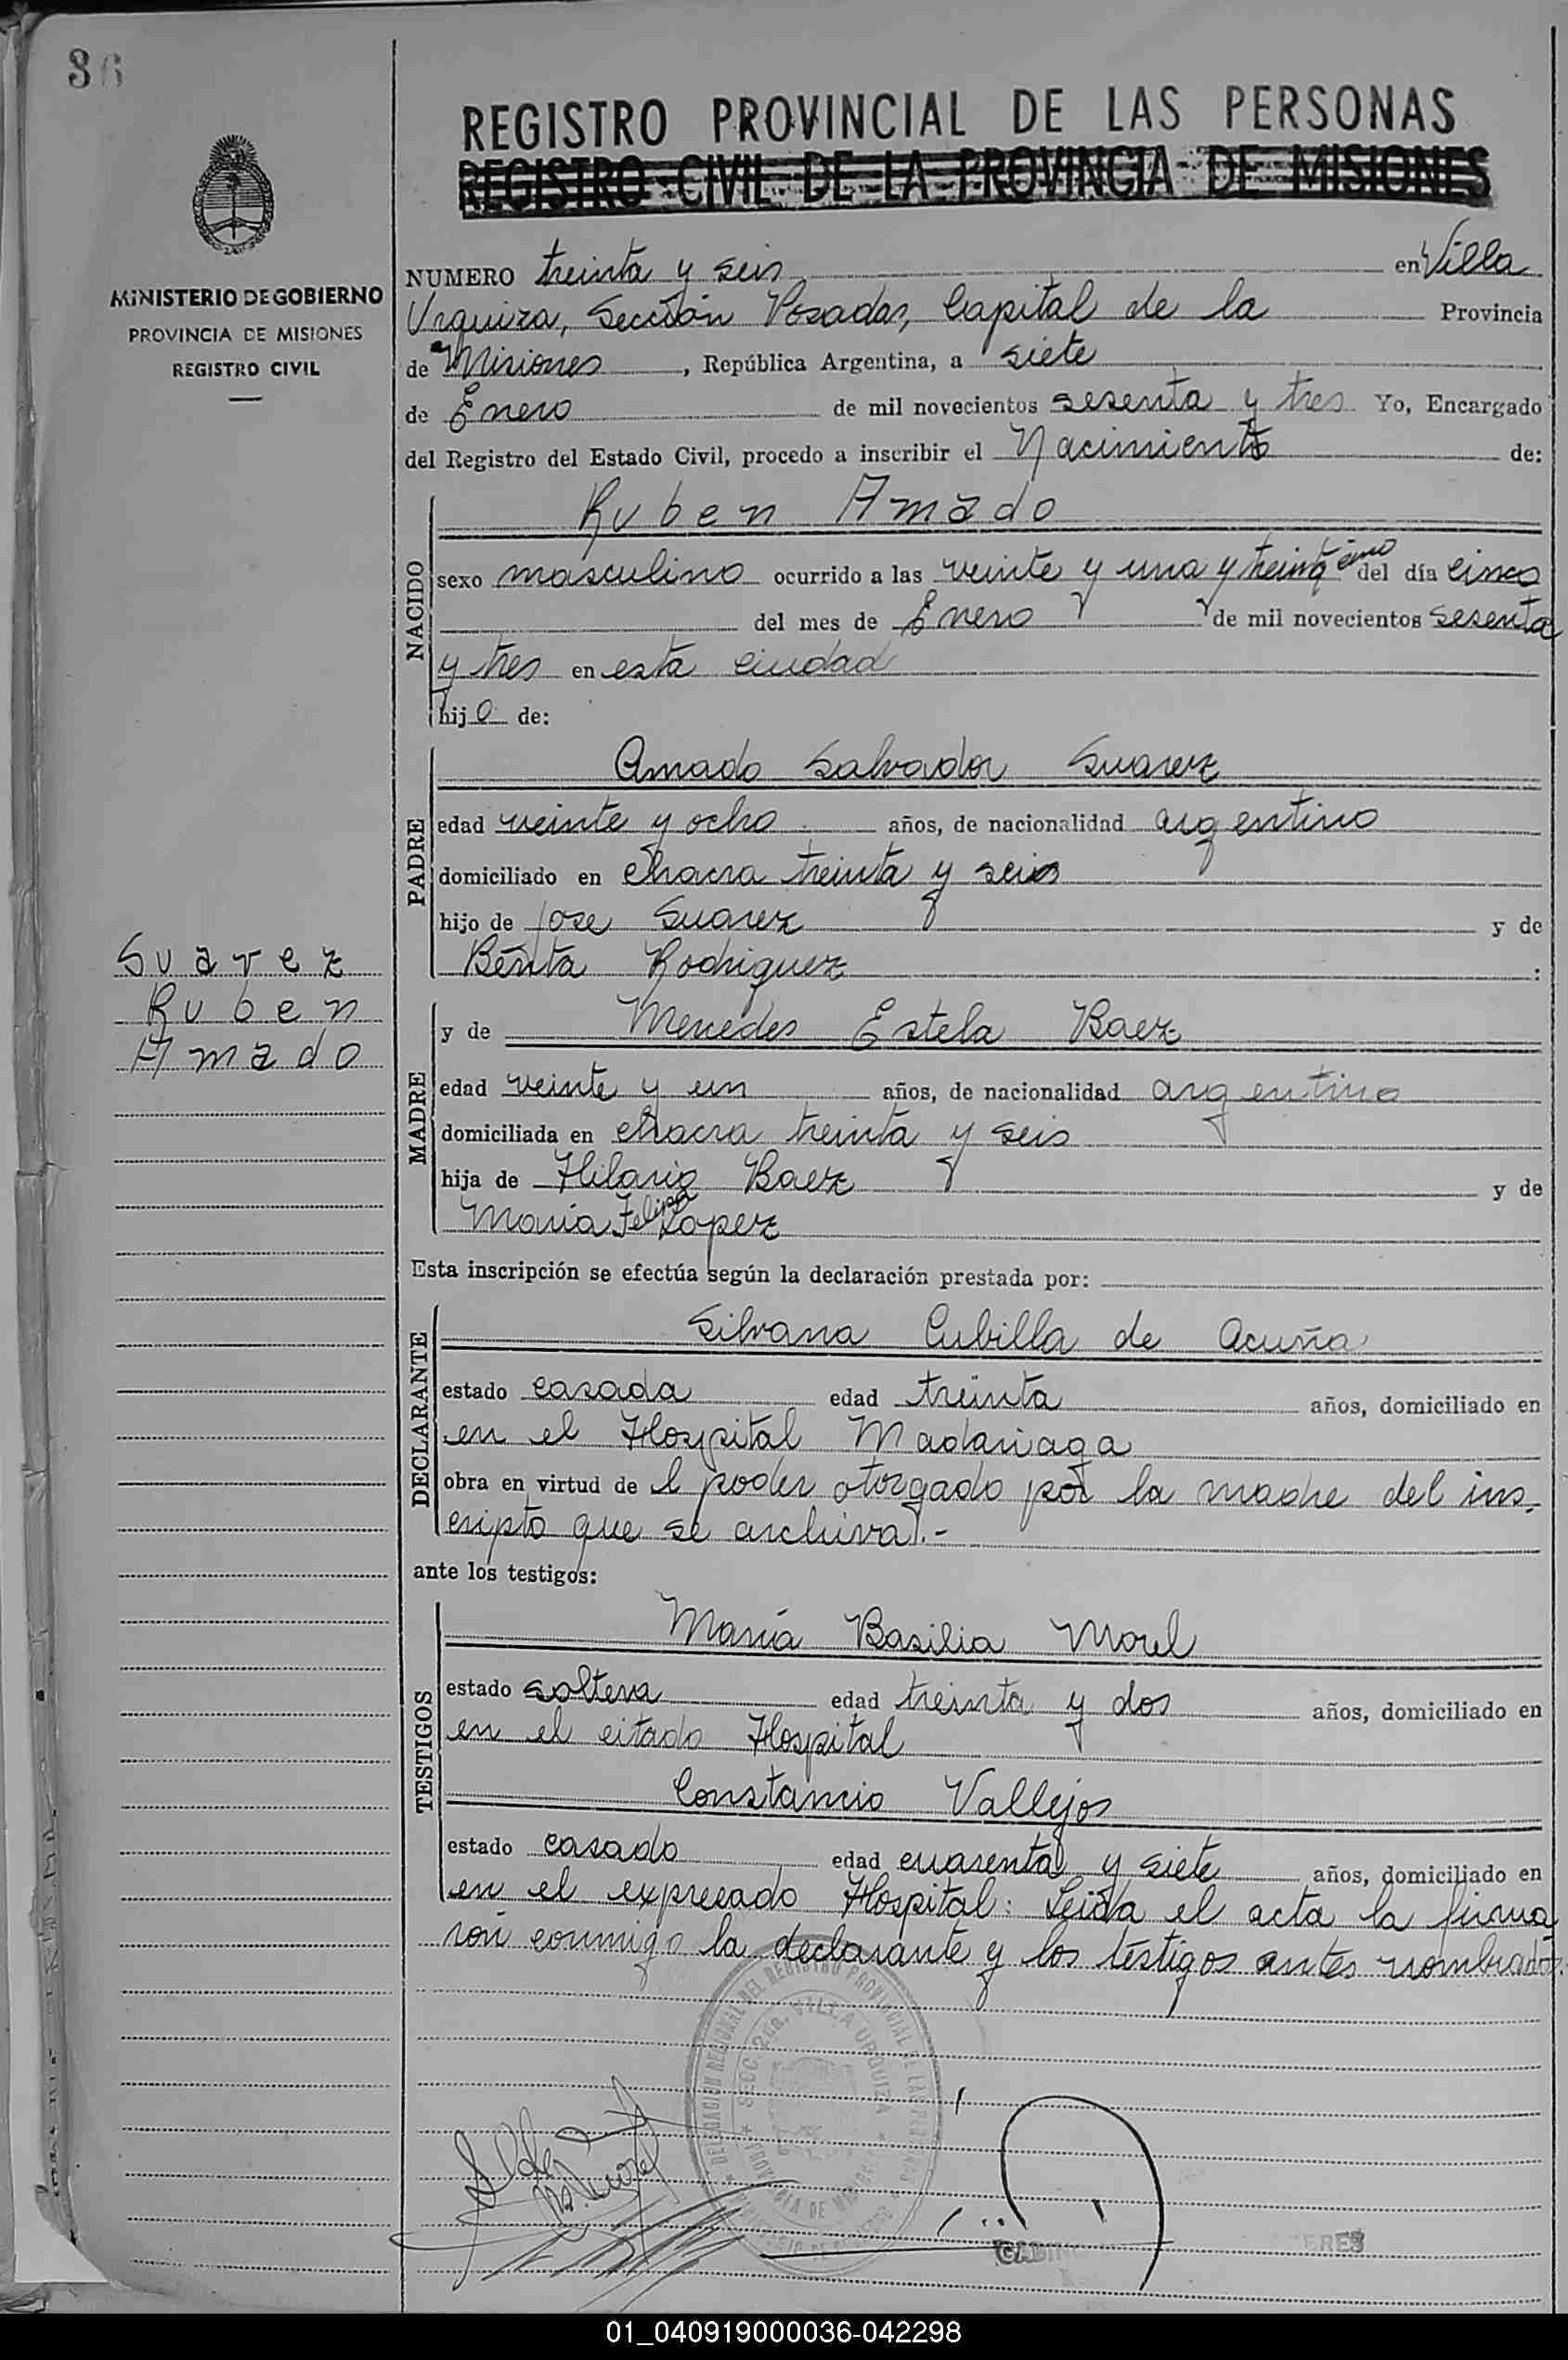 36
REGISTRO PROVINCIAL DE LAS PERSONAS
REGISTRO CIVIL DE LA PROVINCIA DE MISIONES
MINISTERIO DE GOBIERNO
PROVINCIA DE MISIONES
REGISTRO CIVIL
NUMERO treinta y seis en Villa
Urquiza, Sección Posadas, Capital de la Provincia
de Misiones, República Argentina, a siete
de Enero de mil novecientos sesenta y tres Yo, Encargado
del Registro del Estado Civil, procedo a inscribir el Nacimiento de:
Ruben Amado
NACIDO
sexo masculino ocurrido a las veinte y una y treinta del día cinco
del mes de Enero de mil novecientos sesenta
y tres en esta ciudad
hijo de:
PADRE
Amado Salvador Suarez
edad veinte y ocho años, de nacionalidad argentino
domiciliado en chacra treinta y seis
hijo de Jose Suarez y de
Benita Rodriguez :
Suarez
Ruben
Amado
MADRE
y de Mercedes Estela Baez
edad veinte y un años, de nacionalidad argentina
domiciliada en chacra treinta y seis
hija de Hilario Baez y de
María Felipa Lopez
Esta inscripción se efectúa según la declaración prestada por:
DECLARANTE
Silvana Cubilla de Acuña
estado casada edad treinta años, domiciliado en
en el Hospital Madariaga
obra en virtud de l poder otorgado por la madre del ins-
cripto que se archiva.-
ante los testigos:
TESTIGOS
María Basilia Morel
estado soltera edad treinta y dos años, domiciliado en
en el citado Hospital
Constancio Vallejos
estado casado edad cuarenta y siete años, domiciliado en
en el expresado Hospital: Leida el acta la firma
ron conmigo la declarante y los testigos antes nombrados.
DELEGACION REGIONAL DEL REGISTRO PROVINCIAL DE LAS PERSONAS
SECC. 2da. VILLA URQUIZA
PROVINCIA DE MISIONES
01_040919000036-042298